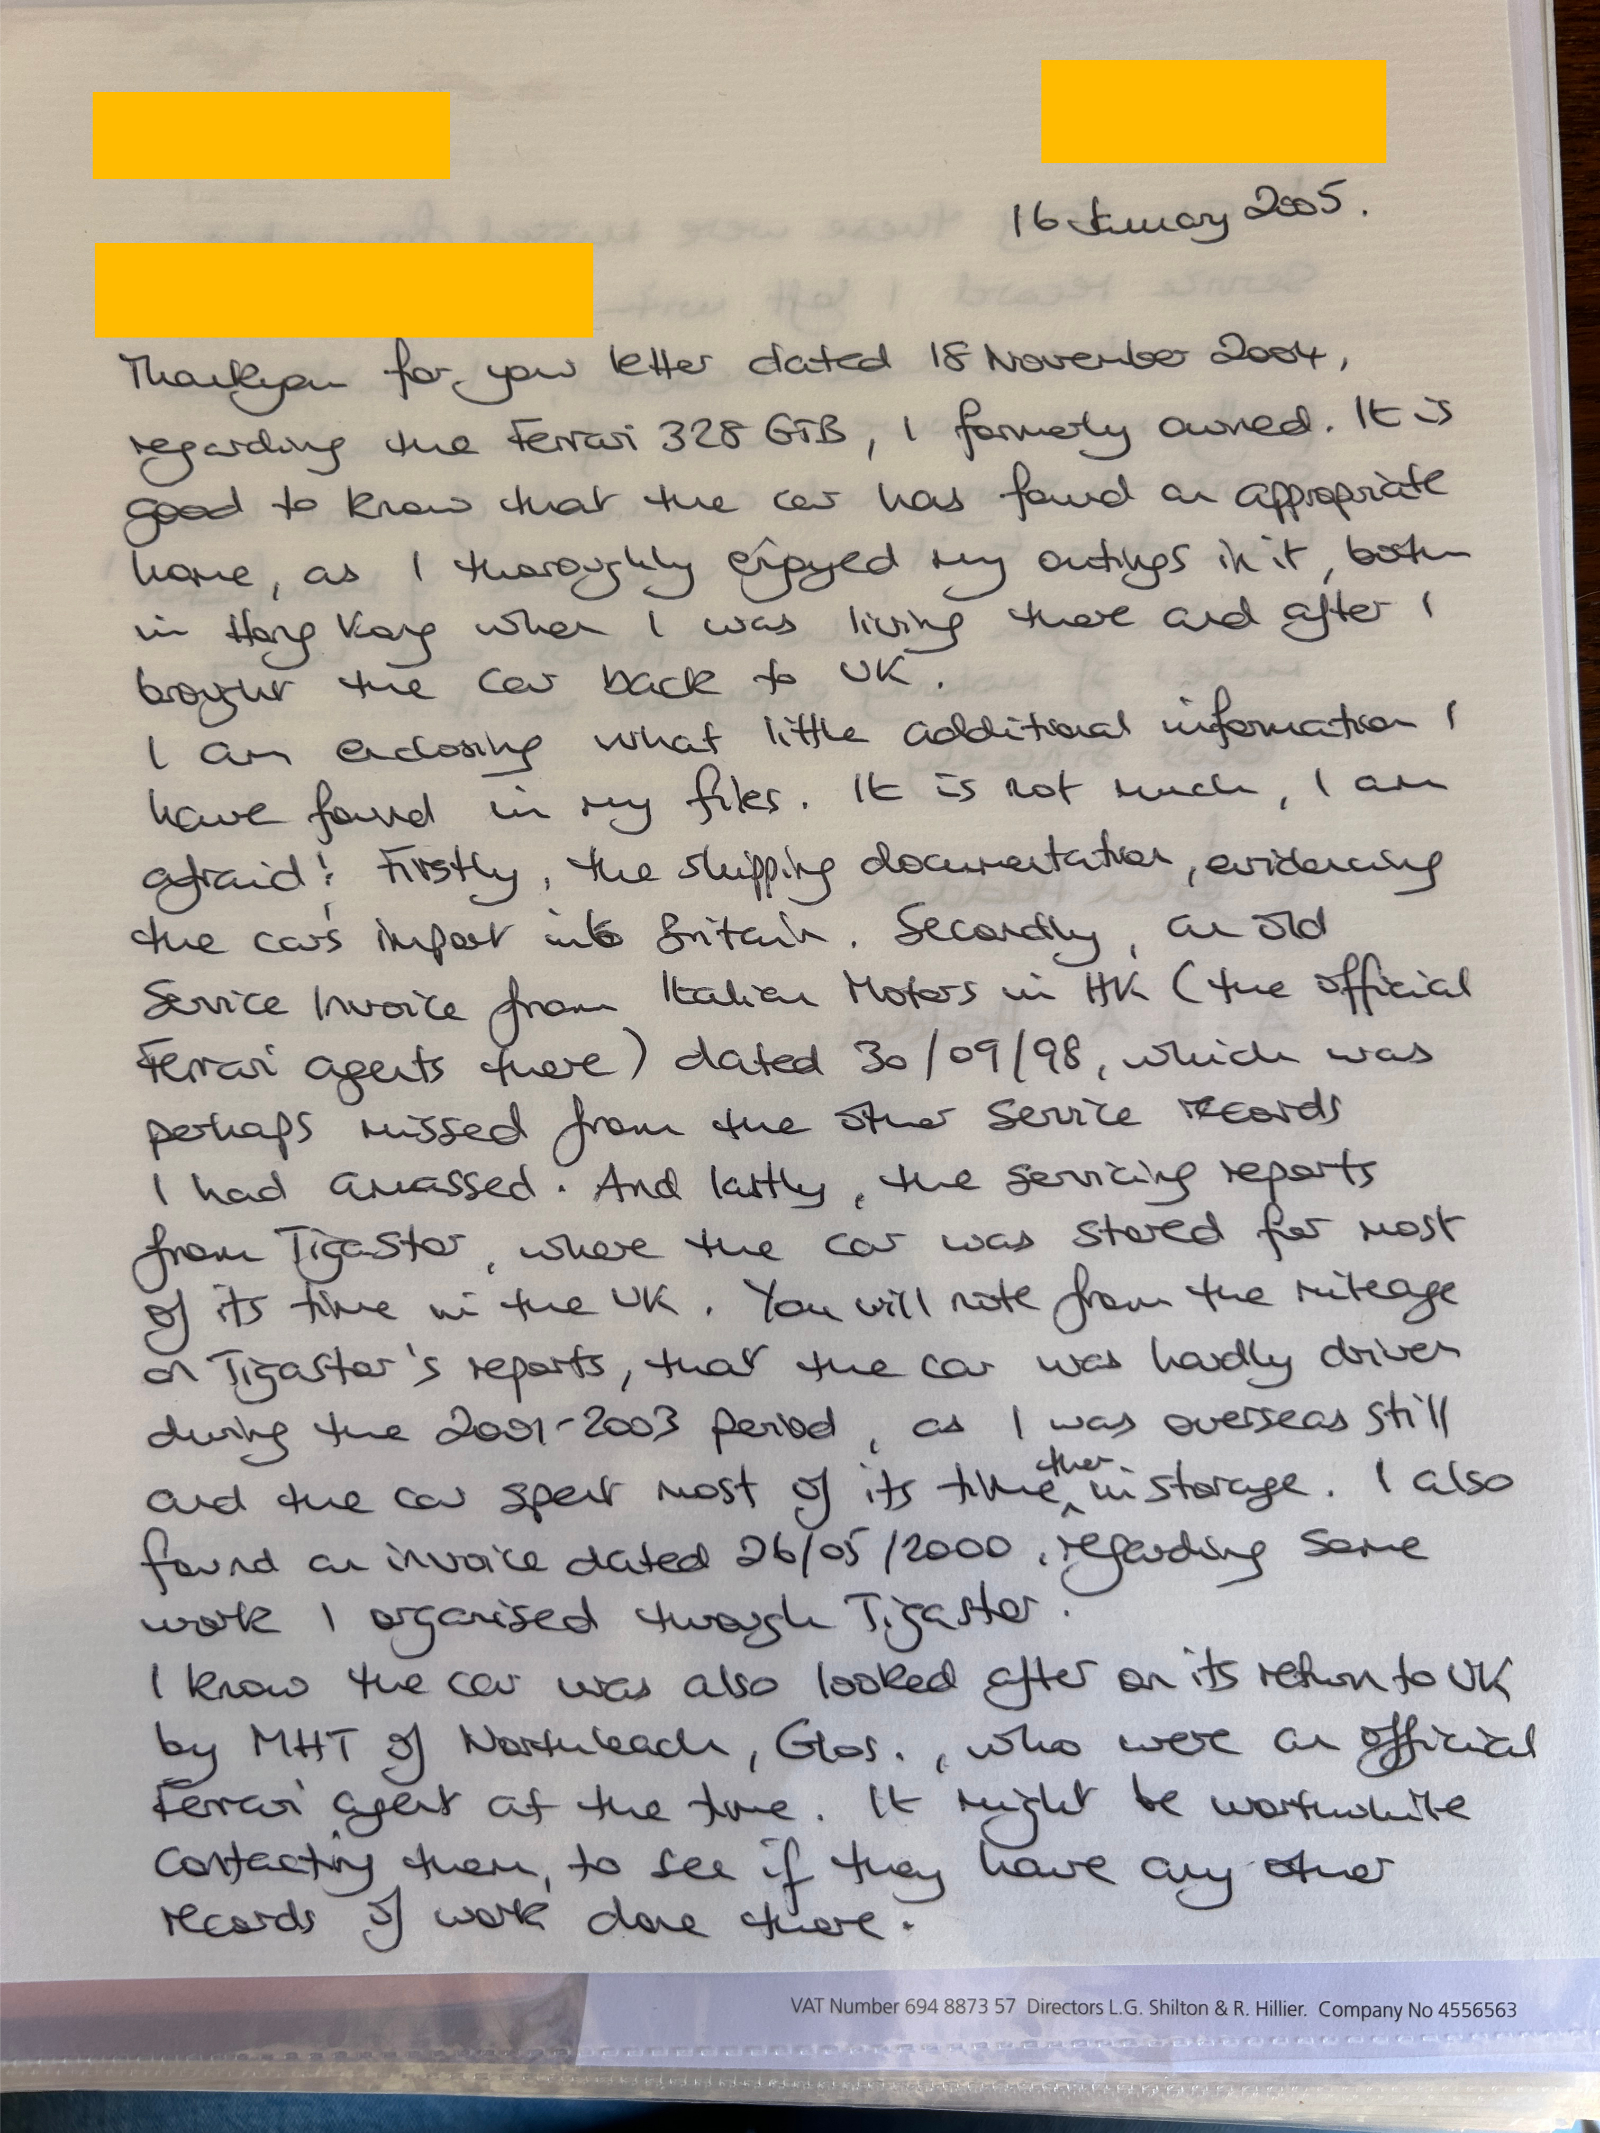 16 January 2005.
Thankyou for your letter dated 18 November 2004,
regarding the Ferrari 328 GTB, I formerly owned. It is
good to know that the car has found an appropriate
home, as I thoroughly enjoyed my outings in it, both
in Hong Kong when I was living there and after I
brought the car back to UK.
I am enclosing what little additional information I
have found in my files. It is not much, I am
afraid! Firstly, the shipping documentation, evidencing
the car's import into Britain. Secondly, an old
Service Invoice from Italian Motors in HK (the official
Ferrari agents there) dated 30/09/98, which was
perhaps missed from the other service records
I had amassed. And lastly, the servicing reports
from Tigastor, where the car was stored for most
of its time in the UK. You will note from the mileage
on Tigastor's reports, that the car was hardly driven
during the 2001-2003 period, as I was overseas still
and the car spent most of its time then in storage. I also
found an invoice dated 26/05/2000, regarding some
work I organised through Tigastor.
I know the car was also looked after on its return to UK
by MHT of Northleach, Glos., who were an official
Ferrari agent at the time. It might be worthwhile
contacting them, to see if they have any other
records of work done there.
VAT Number 694 8873 57 Directors L.G. Shilton & R. Hillier. Company No 4556563